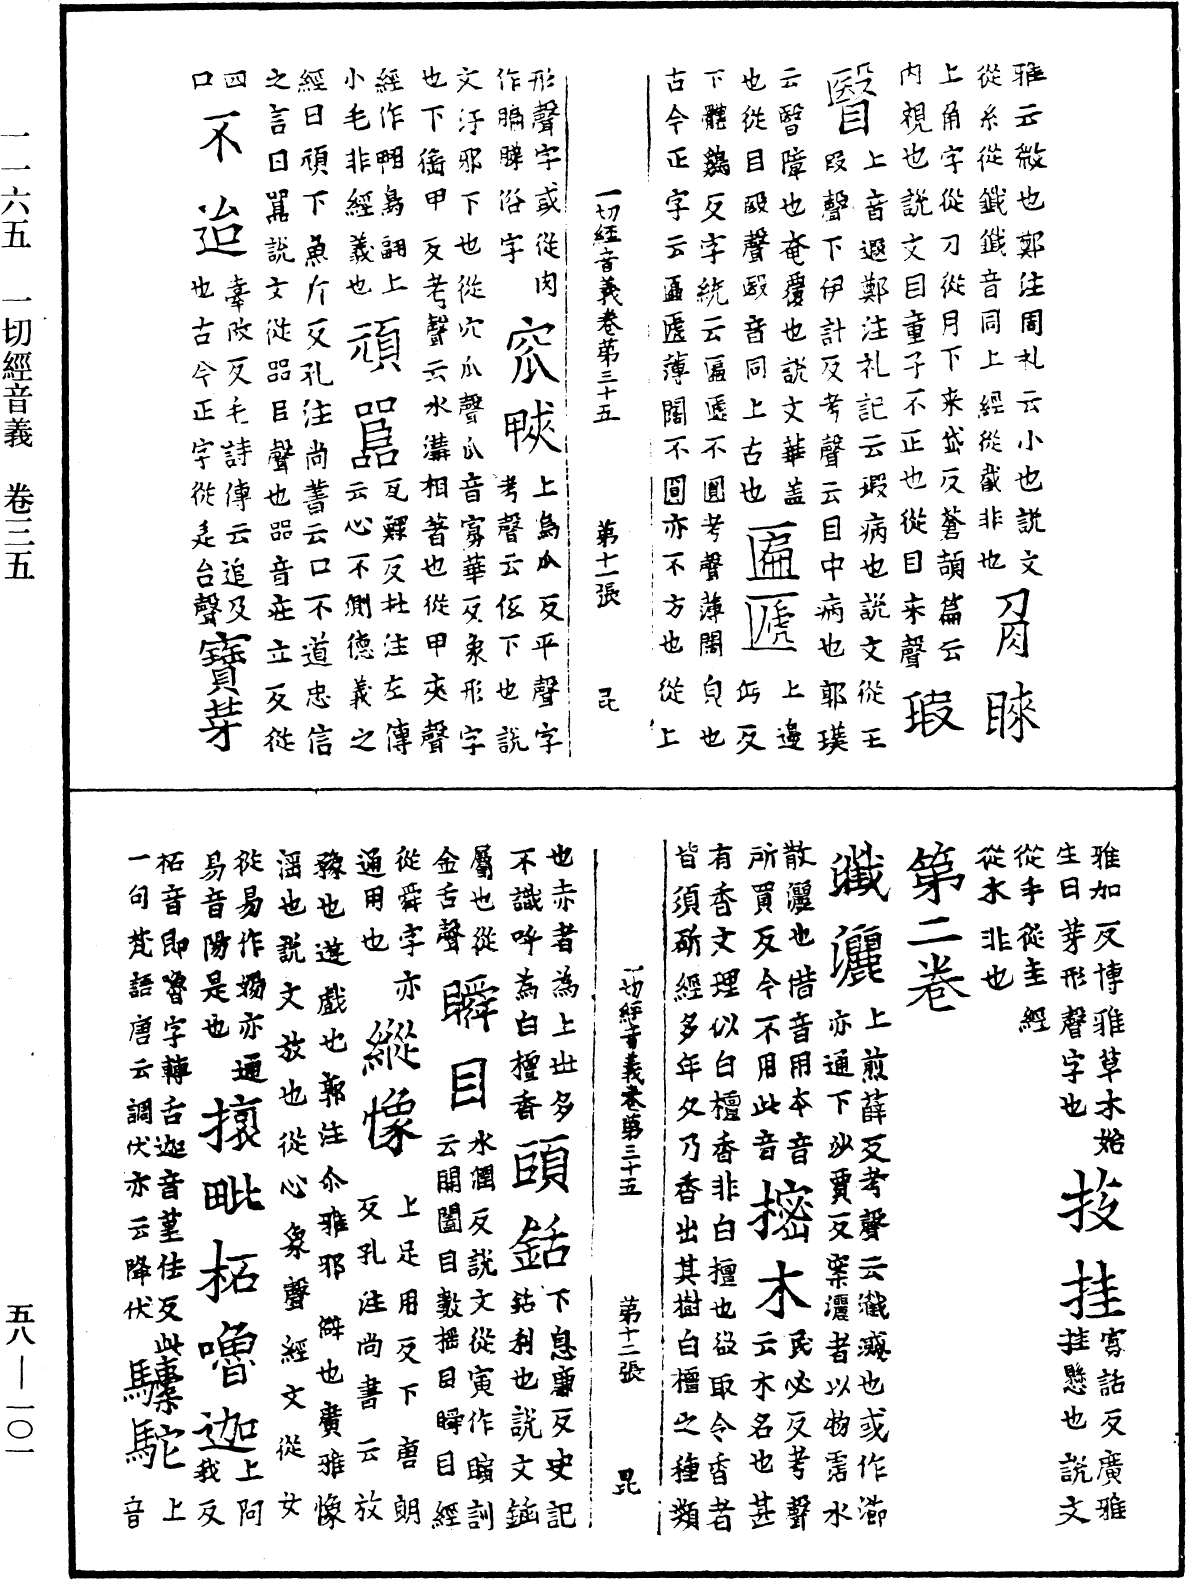 雅云微也鄭注周礼云小也說文
從糸從韱韱音同上經從截非也 角睞
上角字從刀從月下來岱反蒼頡篇云
内視也說文目童子不正也從目来聲 瑕
翳 上音遐鄭注礼記云瑕病也說文從王
叚聲下伊計反考聲云目中病也郭璞
云翳障也奄覆也說文華盖
也從目殹聲殹音同上古也 匾㔸 上邊
下體鷄反字統云匾㔸不圓考聲薄闊皃也
古今正字云匾㔸薄闊不圓亦不方也從上
一切經音義卷第三十五 第十一張 昆
形聲字或從肉
作腡睇俗字 窊㽠 上烏瓜反平聲字
考聲云低下也說
文汙邪下也從穴瓜聲瓜音寡華反象形字
也下𢔶甲反考聲云水溝相著也從甲夾聲
經作鴨鳥翮上
小毛非經義也 頑嚚 瓦鰥反杜注左傳
云心不測德義之
經曰頑下魚斤反孔注尚書云口不道忠信
之言曰嚚說文從㗊臣聲也㗊音莊立反從
四
口 不迨 臺改反毛詩傳云迨及
也古今正字從辵台聲 寶芽
雅加反博雅草木始
生曰芽形聲字也 技挂 寡話反廣雅
挂懸也說文
從手從圭經
從木非也
第二卷
㰇灑 上煎薛反考聲云㰇㶚也或作㵶
亦通下沙賈反案灑者以物霑水
散灑也借音用本音
所買反今不用此音 榓木 民必反考聲
云木名也甚
有香文理似白檀香非白檀也欲取令香者
皆須斫經多年久乃香出其樹白檀之種類
一切經音義卷第三十五 第十二張 昆
也赤者為上世多
不識呼為白檀香 頭銛 下息廉反史記
銛利也說文鍤
屬也從
金舌聲 瞬目 水潤反說文從寅作瞚訓
云開闔目數搖目瞬目經
從舜字亦
通用也 縱㦽 上足用反下唐朗
反孔注尚書云放
豫也逰戲也郭注尒雅邪僻也廣雅㦽
淫也說文放也從心象聲經文從女
從易作婸亦通
易音陽是也 㨲毗柘嚕迦 上阿
我反
柘音即嚕字轉舌迦音堇佉反此
一句梵語唐云調伏亦云降伏 騾駝 上
音
一一六五 一切經音義 卷三五
五八—一〇一